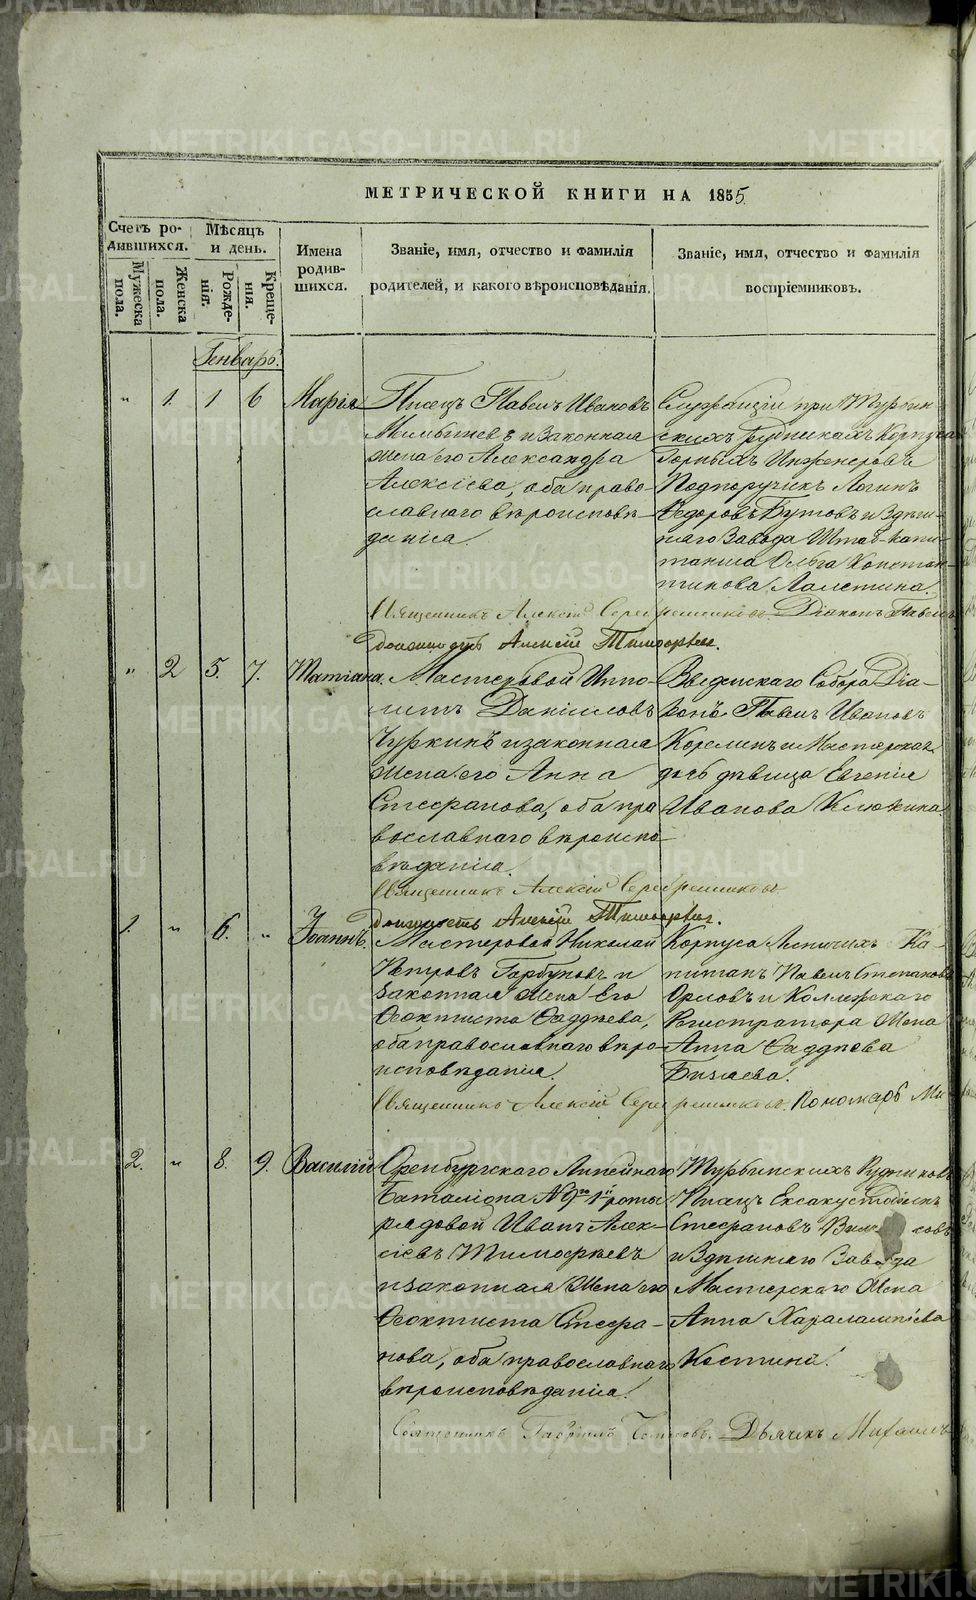 МЕТРИЧЕСКОЙ КНИГИ НА 1855
Счетъ ро-
дившихся.
Мѣсяцъ
и день.
Мужеска
пола.
Женска
пола.
Рожде-
нія.
Креще-
нія.
Имена
родив-
шихся.
Званіе, имя, отчество и фамилія
родителей, и какого вѣроисповѣданія.
Званіе, имя, отчество и фамилія
воспріемниковъ.
Генварь.
" 1. 1 6 Марія
Писецъ Павелъ Ивановъ
и законная
жена его Александра
Алексіева, оба право-
славнаго вѣроисповѣ-
данія.
Служащій при Турьин-
скихъ Рудникахъ Корпуса
Горныхъ Инженеровъ
Подпоручикъ Логинъ
Федоровъ Бутовъ и Здѣш-
няго Завода Штабъ-Капи-
танша Ольга Констан-
тинова Лалетина.
Священникъ Алексій Серебренниковъ. Діаконъ Павелъ
Алексій Тимофѣевъ.
" 2 5. 7. Татіана.
Мастеровой Иппо-
литъ Даніиловъ
Чуркинъ и законная
жена его Анна
Стефанова, оба пра
вославнаго вѣроиспо-
вѣданія.
Введенскаго Собора Діа-
конъ Павелъ Ивановъ
Корелинъ и Мастерская
дочь дѣвица Евгенія
Иванова Клюкина.
Священникъ Алексій Серебренниковъ
Алексій Тимофѣевъ.
1. " 6. " Іоаннъ.
Мастеровой Николай
Петровъ Горбуновъ и
законная жена его
Феоктиста Фаддѣева,
оба православнаго вѣро-
исповѣданія.
Корпуса Лѣсничихъ Ка-
питанъ Павелъ Степановъ
Орловъ и Коллежскаго
Регистратора жена
Анна Фаддѣева
Бизяева.
Священникъ Алексій Серебренниковъ. Пономарь Ми
2. " 8. 9. Василій
Оренбургскаго Линейнаго
Баталіона № 9го 1й роты
рядовой Иванъ Алек-
сіевъ Тимофѣевъ
и законная жена его
Феоктиста Стефа-
нова, оба православнаго
вѣроисповѣданія.
Турьинскихъ Рудниковъ
Писецъ Ексакустодіанъ
Стефановъ
и Здѣшняго Завода
Мастерскаго жена
Анна Харалампіева
Костина.
Священникъ Гавріилъ Дьячекъ Михаилъ
METRIKI.GASO-URAL.RU